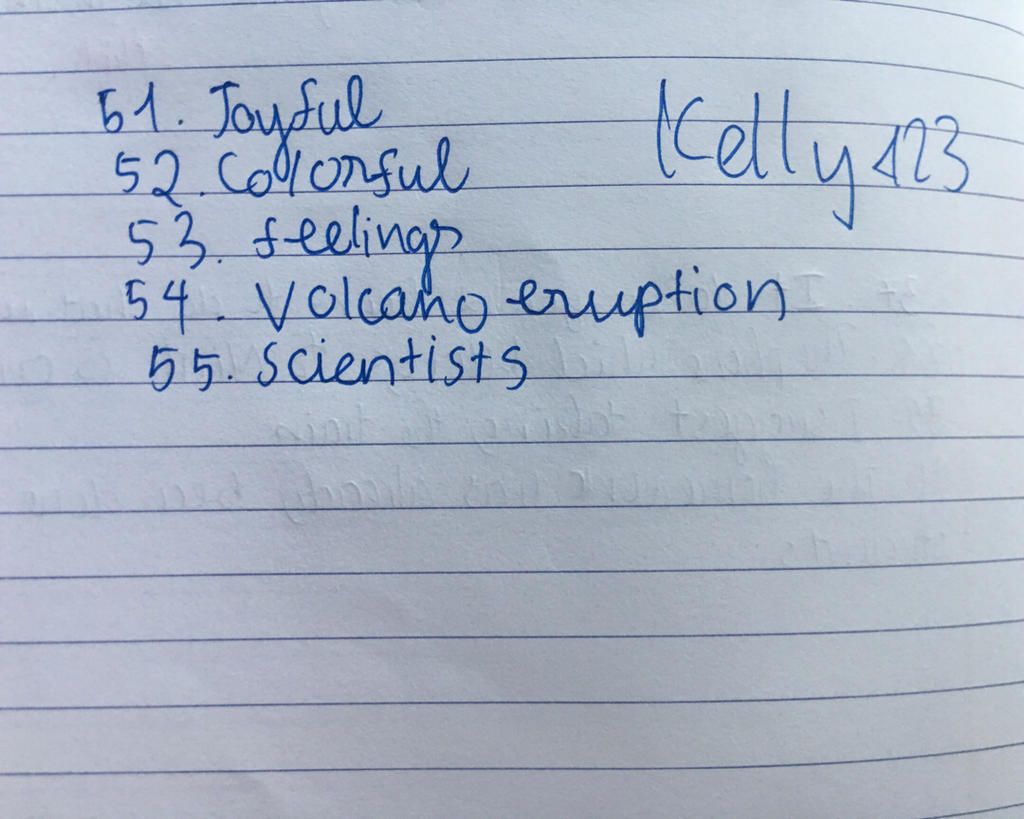 51. Joyful
Kelly123
52. Colorful
53. feelings
54. Volcano eruption
55. Scientists